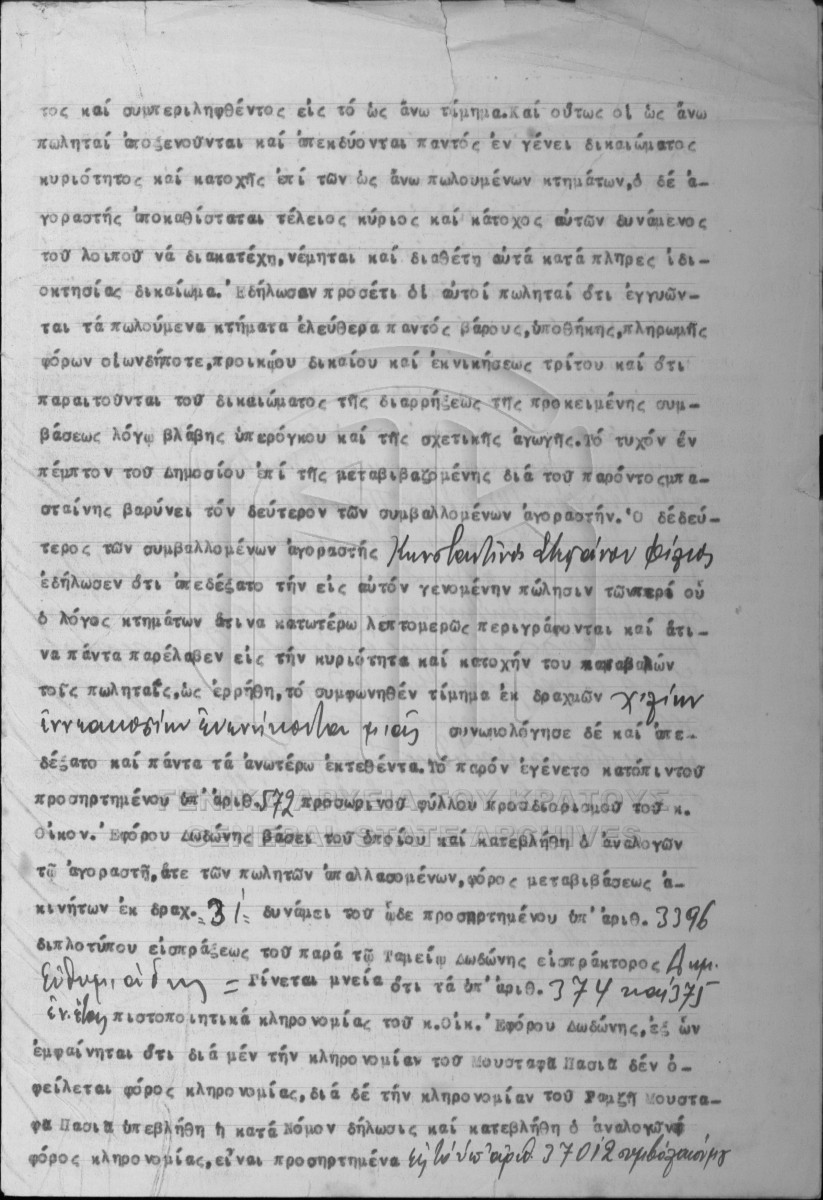 τος καί συμπεριληφθέντος εἰς τό ὡς ἄνω τίμημα.Καί οὕτως οἱ ὡς ἄνω
πωληταί ἀποξενοῦνται καί ἀπεκδύονται παντός ἐν γένει δικαιώματος
κυριότητος καί κατοχῆς ἐπί τῶν ὡς ἄνω πωλουμένων κτημάτων,ὁ δέ ἀ-
γοραστής ἀποκαθίσταται τέλειος κύριος καί κάτοχος αὐτῶν δυνάμενος
τοῦ λοιποῦ νά διακατέχῃ,νέμηται καί διαθέτῃ αὐτά κατά πλῆρες ἰδι-
οκτησίας δικαίωμα.Ἐδήλωσαν προσέτι οἱ αὐτοί πωληταί ὅτι ἐγγυῶν-
ται τά πωλούμενα κτήματα ἐλεύθερα παντός βάρους,ὑποθήκης,πληρωμῆς
φόρων οἱωνδήποτε,προικῴου δικαίου καί ἐκνικήσεως τρίτου καί ὅτι
παραιτοῦνται τοῦ δικαιώματος τῆς διαρρήξεως τῆς προκειμένης συμ-
βάσεως λόγῳ βλάβης ὑπερόγκου καί τῆς σχετικῆς ἀγωγῆς.Τό τυχόν ἕν
πέμπτον τοῦ Δημοσίου ἐπί τῆς μεταβιβαζομένης διά τοῦ παρόντοςμπα-
σταίνης βαρύνει τόν δεύτερον τῶν συμβαλλομένων ἀγοραστήν.Ὁ δέδεύ-
τερος τῶν συμβαλλομένων ἀγοραστής Κωνσταντῖνος Στεφάνου Φίλιος
ἐδήλωσεν ὅτι ἀπεδέξατο τήν εἰς αὐτόν γενομένην πώλησιν τῶνπερί οὗ
ὁ λόγος κτημάτων ἅτινα κατωτέρω λεπτομερῶς περιγράφονται καί ἅτι-
να πάντα παρέλαβεν εἰς τήν κυριότητα καί κατοχήν του καταβαλών
τοῖς πωληταῖς,ὡς ἐρρήθη,τό συμφωνηθέν τίμημα ἐκ δραχμῶν χιλίων
ἐννεακοσίων ἐνενήκοντα μιᾶς συνωμολόγησε δέ καί ἀπε-
δέξατο καί πάντα τά ἀνωτέρω ἐκτεθέντα.Τό παρόν ἐγένετο κατόπιντοῦ
προσηρτημένου ὑπ'ἀριθ.572 προσωρινοῦ φύλλου προσδιορισμοῦ τοῦ κ.
Οἰκον. Ἐφόρου Δωδώνης βάσει τοῦ ὁποίου καί κατεβλήθη ὁ ἀναλογῶν
τῷ ἀγοραστῇ,ἅτε τῶν πωλητῶν ἀπαλλασομένων,φόρος μεταβιβάσεως ἀ-
κινήτων ἐκ δραχ.=31= δυνάμει τοῦ ὧδε προσηρτημένου ὑπ'ἀριθ. 3396
διπλοτύπου εἰσπράξεως τοῦ παρά τῷ Ταμείῳ Δωδώνης εἰσπράκτορος Δημ.
Εὐθυμιάδης = Γίνεται μνεία ὅτι τά ὑπ'ἀριθ. 374 καί 375
ἐν.ἔτους πιστοποιητικά κληρονομίας τοῦ κ.Οἰκ. Ἐφόρου Δωδώνης,ἐξ ὧν
ἐμφαίνηται ὅτι διά μέν τήν κληρονομίαν τοῦ Μουσταφᾶ Πασιᾶ δέν ὀ-
φείλεται φόρος κληρονομίας,διά δέ τήν κληρονομίαν τοῦ Ραμζῆ Μουστα-
φᾶ Πασιᾶ ὑπεβλήθη ἡ κατά Νόμον δήλωσις καί κατεβλήθη ὁ ἀναλογῶν
φόρος κληρονομίας,εἶναι προσηρτημένα εἰς τό ὑπ'ἀριθ. 37012 συμβόλαιόν μου
ΓΕΝΙΚΑ ΑΡΧΕΙΑ ΤΟΥ ΚΡΑΤΟΥΣ
GENERAL STATE ARCHIVES